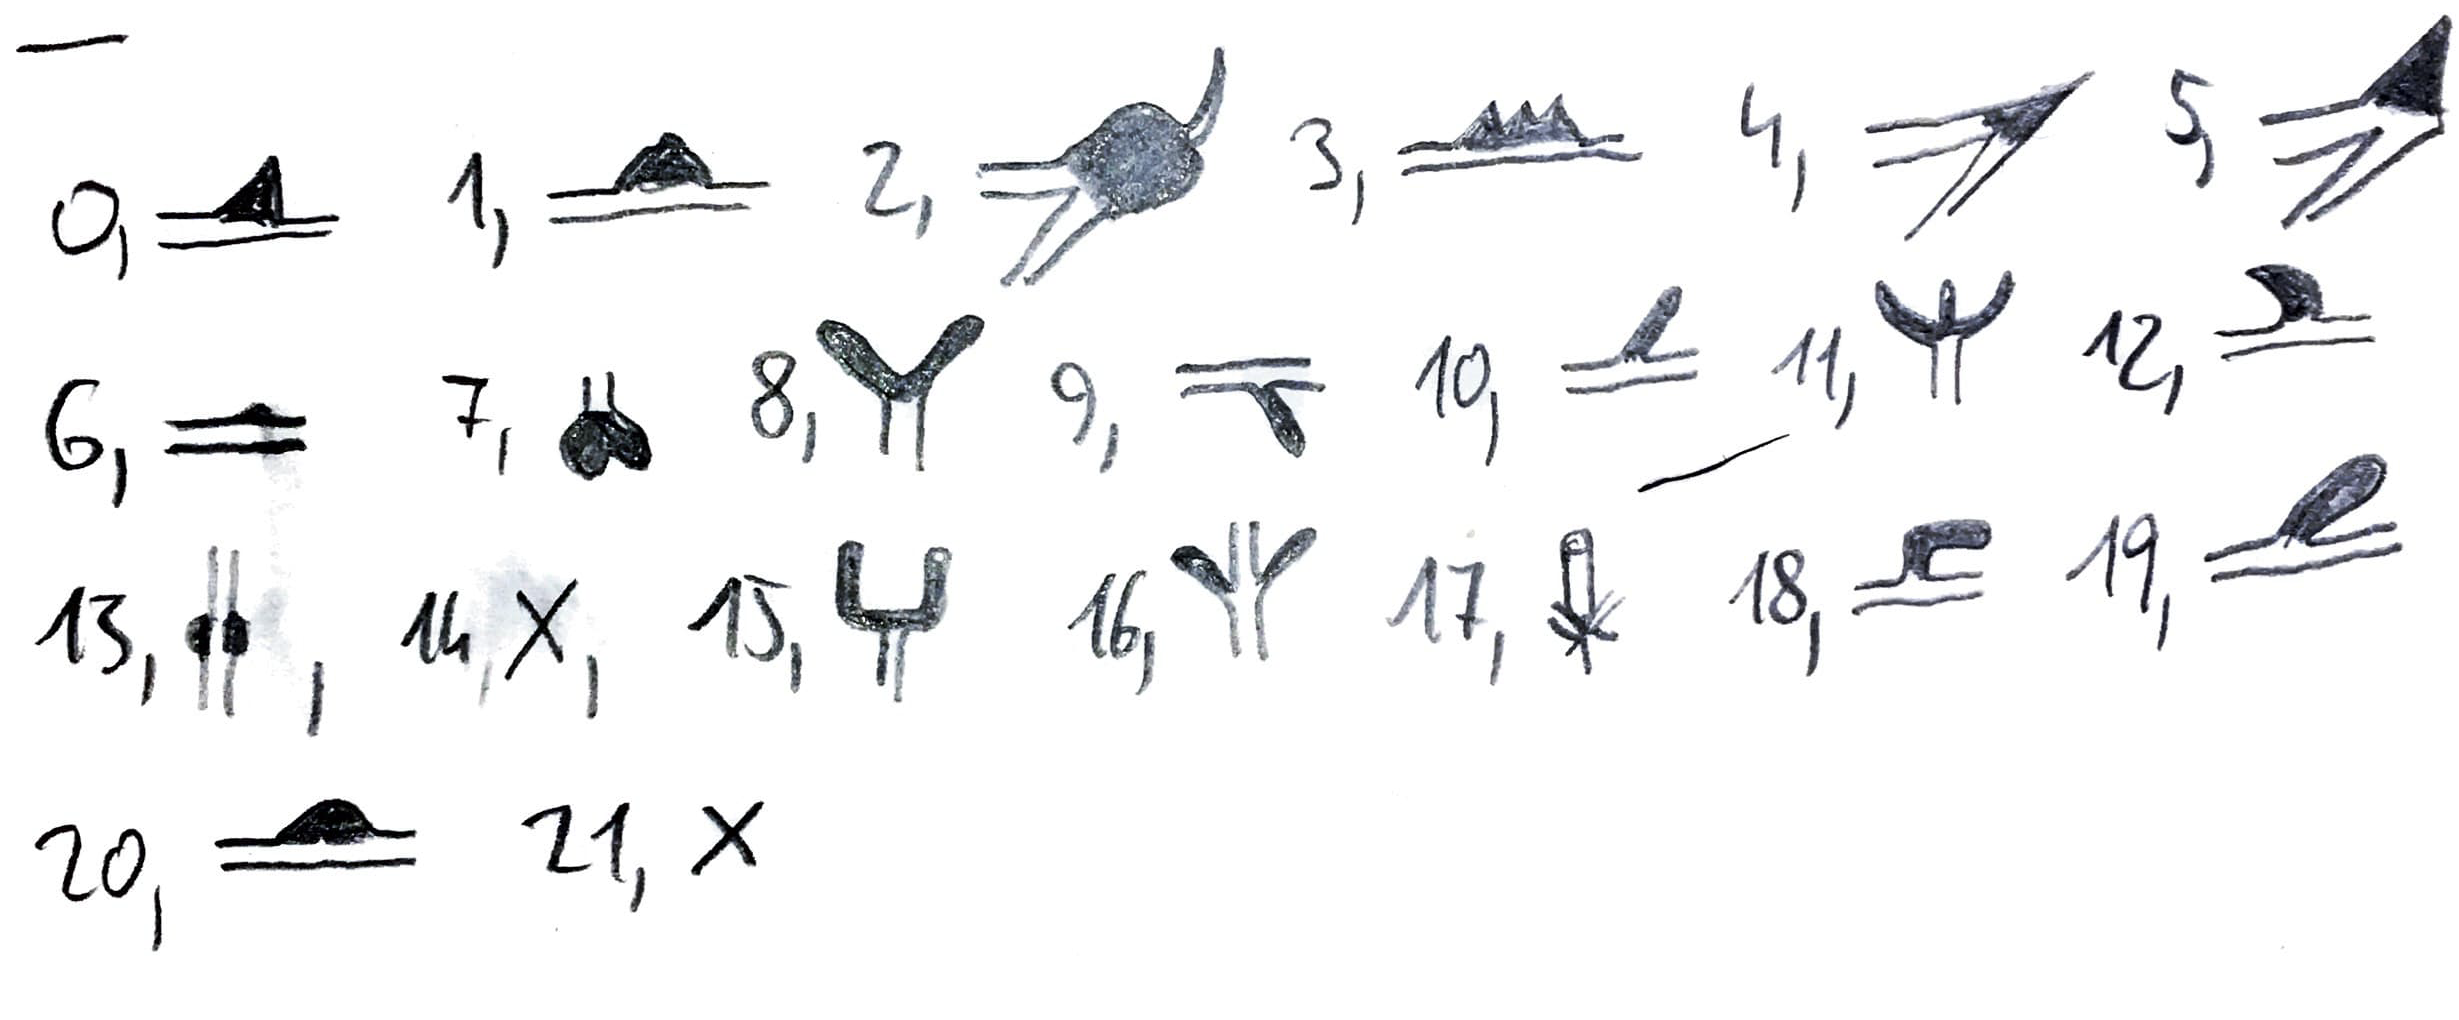 0, 1, 2, 3, 4, 5,
6, 7, 8, 9, 10, 11, 12,
13, , 14, X, 15, 16, 17, 18, 19,
20, 21, X